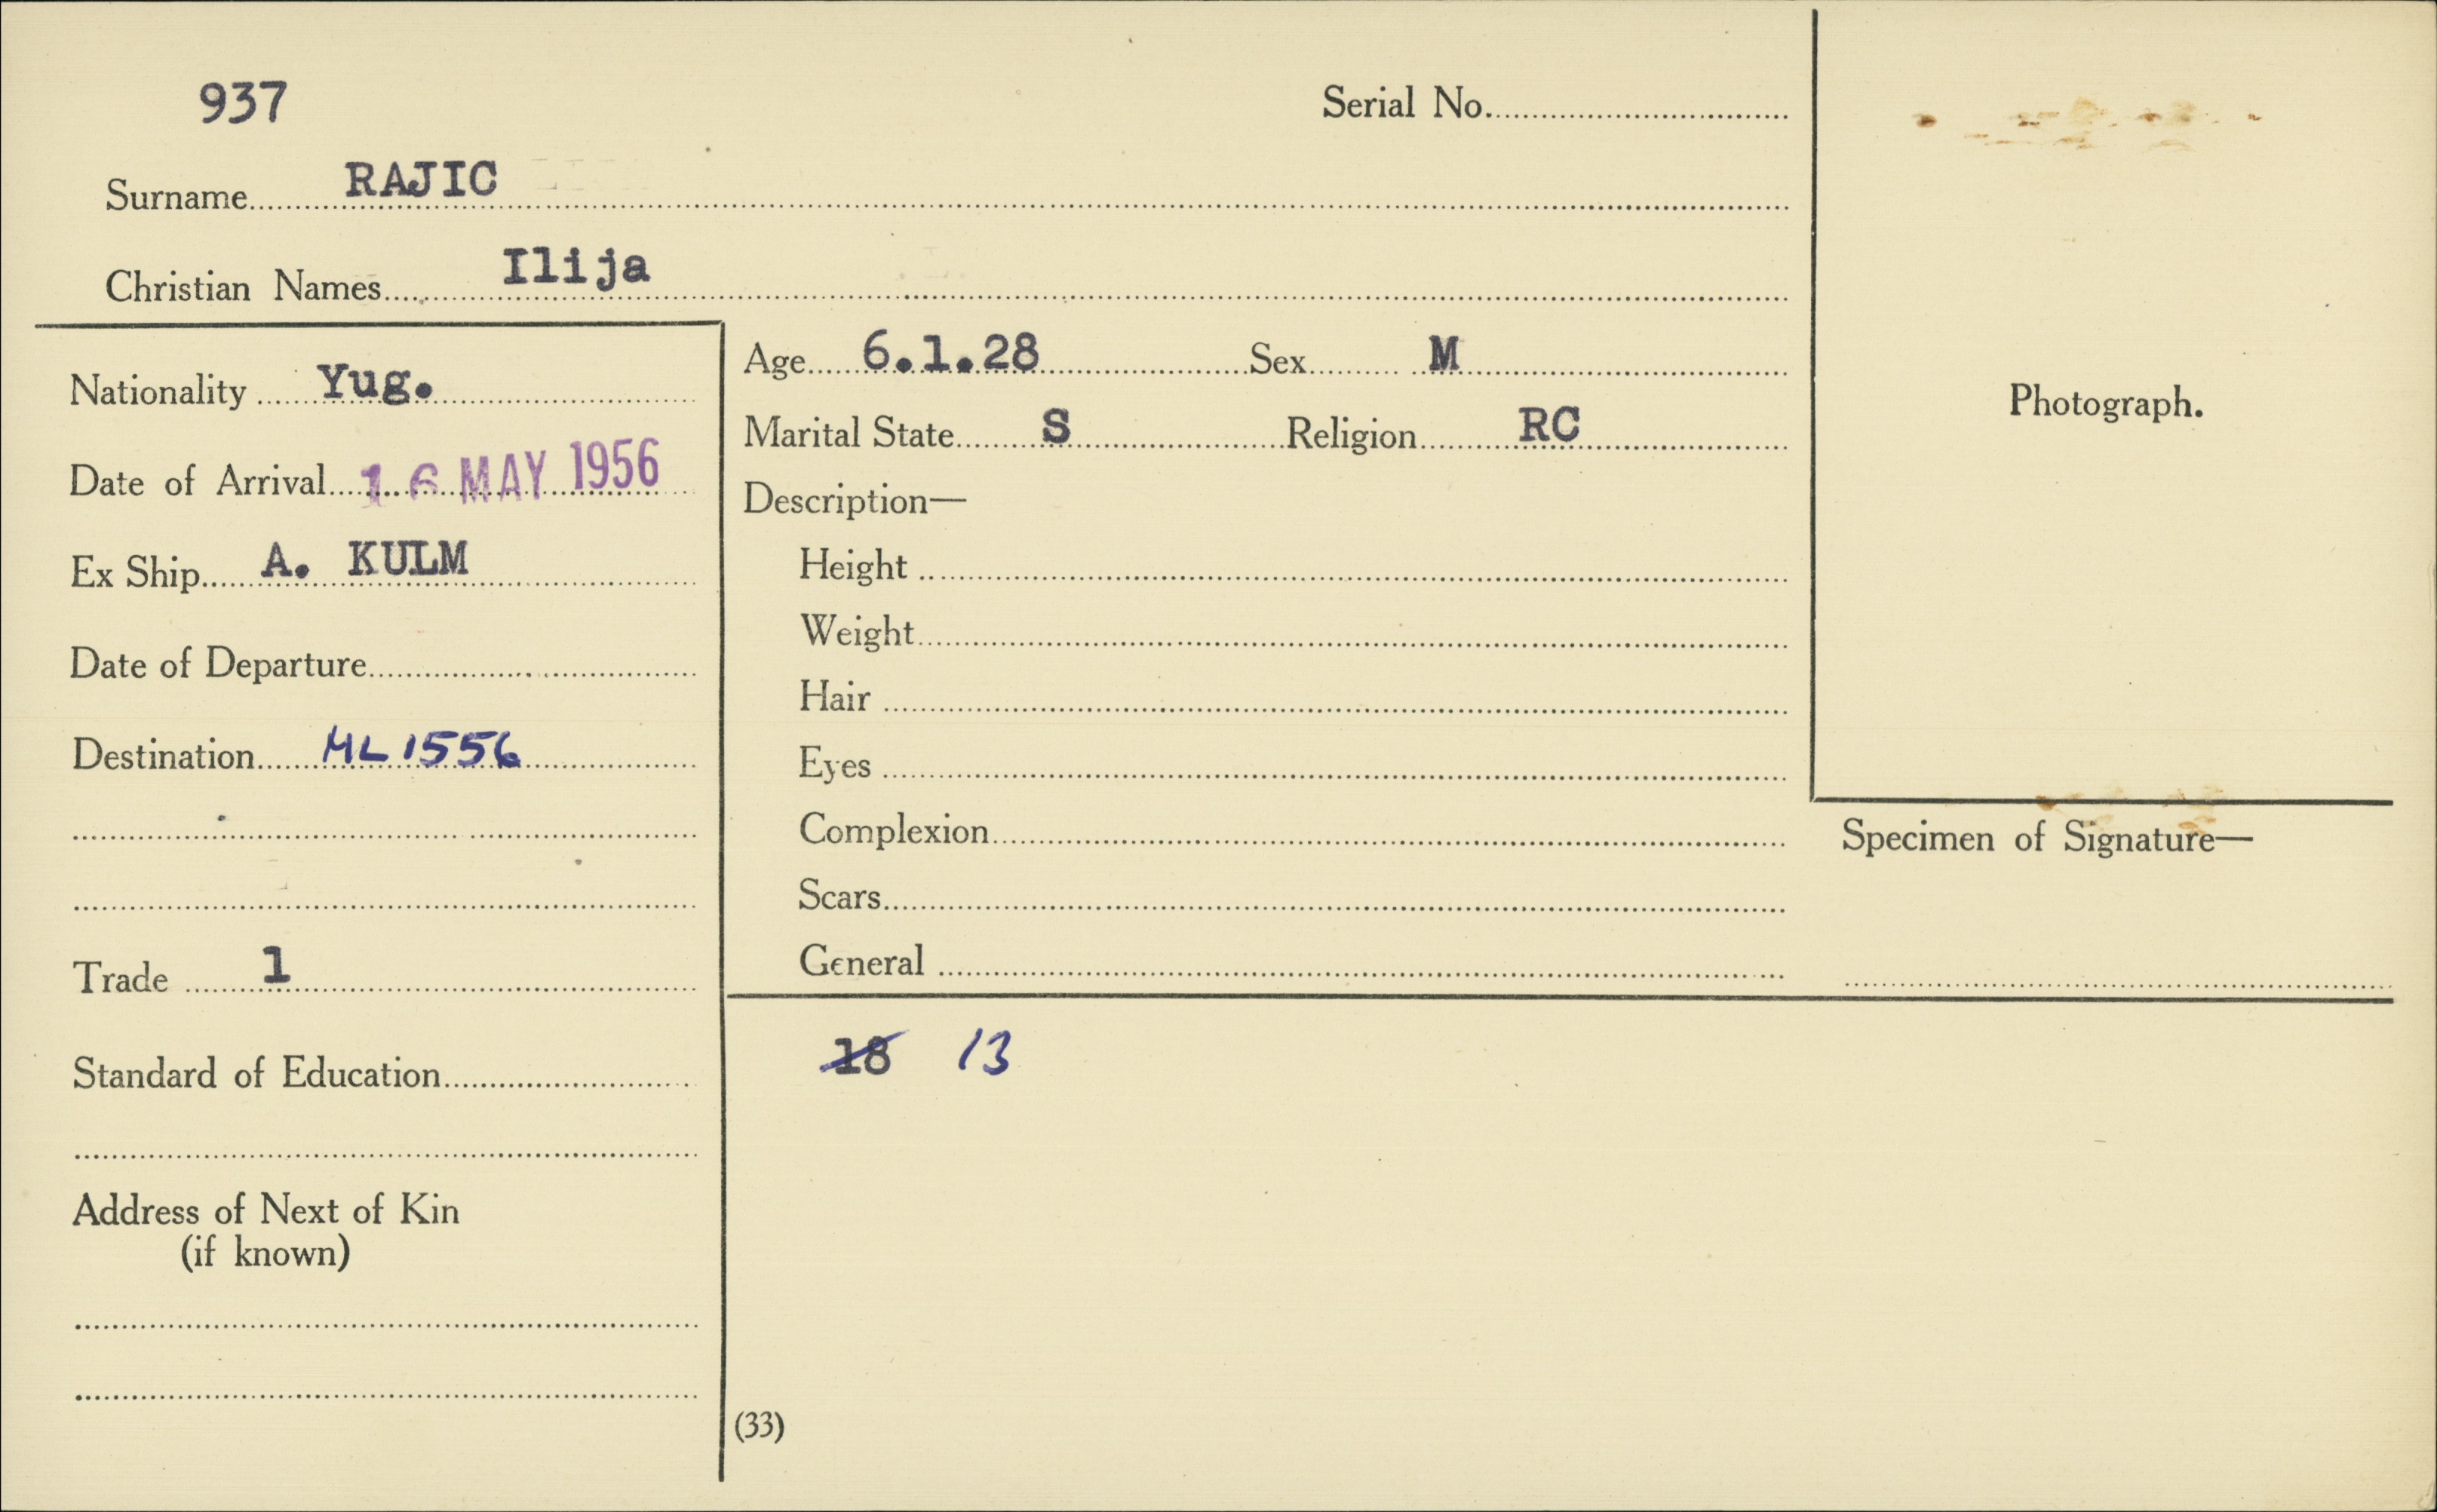 937
Serial No.
Surname RAJIC
Christian Names Ilija
Nationality Yug.
Date of Arrival 16 MAY 1956
Ex Ship A. KULM
Date of Departure
Destination ML 1556
Trade 1
Standard of Education
Address of Next of Kin
(if known)
Age 6.1.28 Sex M
Marital State S Religion RC
Description—
Height
Weight
Hair
Eyes
Complexion
Scars
General
18 13
(33)
Photograph.
Specimen of Signature—